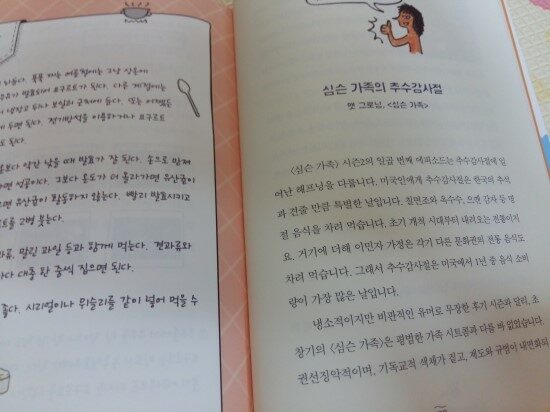 푹푹 찌는 여름철에는 그냥 상온에
발효되어 요구르트가 된다. 다른 계절에는
두면 된다. 전기방석을 이용하거나 요구르트
도 된다.
보다 약간 낮을 때 발효가 잘 된다. 손으로 만져
면 성공이다. 그보다 온도가 더 올라가면 유산균이
면 유산균이 활동하지 않는다. 빨리 발효시키고
트를 2병 붓는다.
류, 말린 과일 등과 함께 먹는다. 견과류와
다 대충 한 줌씩 집으면 된다.
좋다. 시리얼이나 뮈슬리를 같이 넣어 먹을 수
심슨 가족의 추수감사절
맷 그로닝, <심슨 가족>
<심슨 가족> 시즌2의 일곱 번째 에피소드는 추수감사절에 일
어난 해프닝을 다룹니다. 미국인에게 추수감사절은 한국의 추석
과 견줄 만큼 특별한 날입니다. 칠면조와 옥수수, 으깬 감자 등 명
절 음식을 차려 먹습니다. 초기 개척 시대부터 내려오는 전통이지
요. 거기에 더해 이민자 가정은 각기 다른 문화권의 전통 음식도
차려 먹습니다. 그래서 추수감사절은 미국에서 1년 중 음식 소비
량이 가장 많은 날입니다.
냉소적이지만 비관적인 유머로 무장한 후기 시즌과 달리, 초
창기의 <심슨 가족>은 평범한 가족 시트콤과 다를 바 없었습니다.
권선징악적이며, 기독교적 색채가 짙고, 제도와 규범이 내면화되